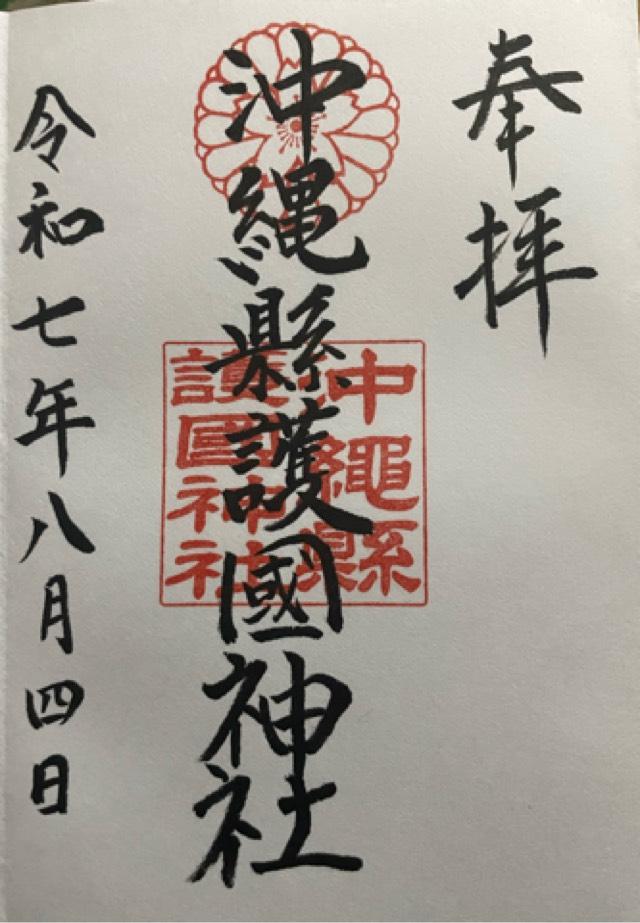 奉拝
沖縄縣護國神社
沖繩縣
護國神社
令和七年八月四日